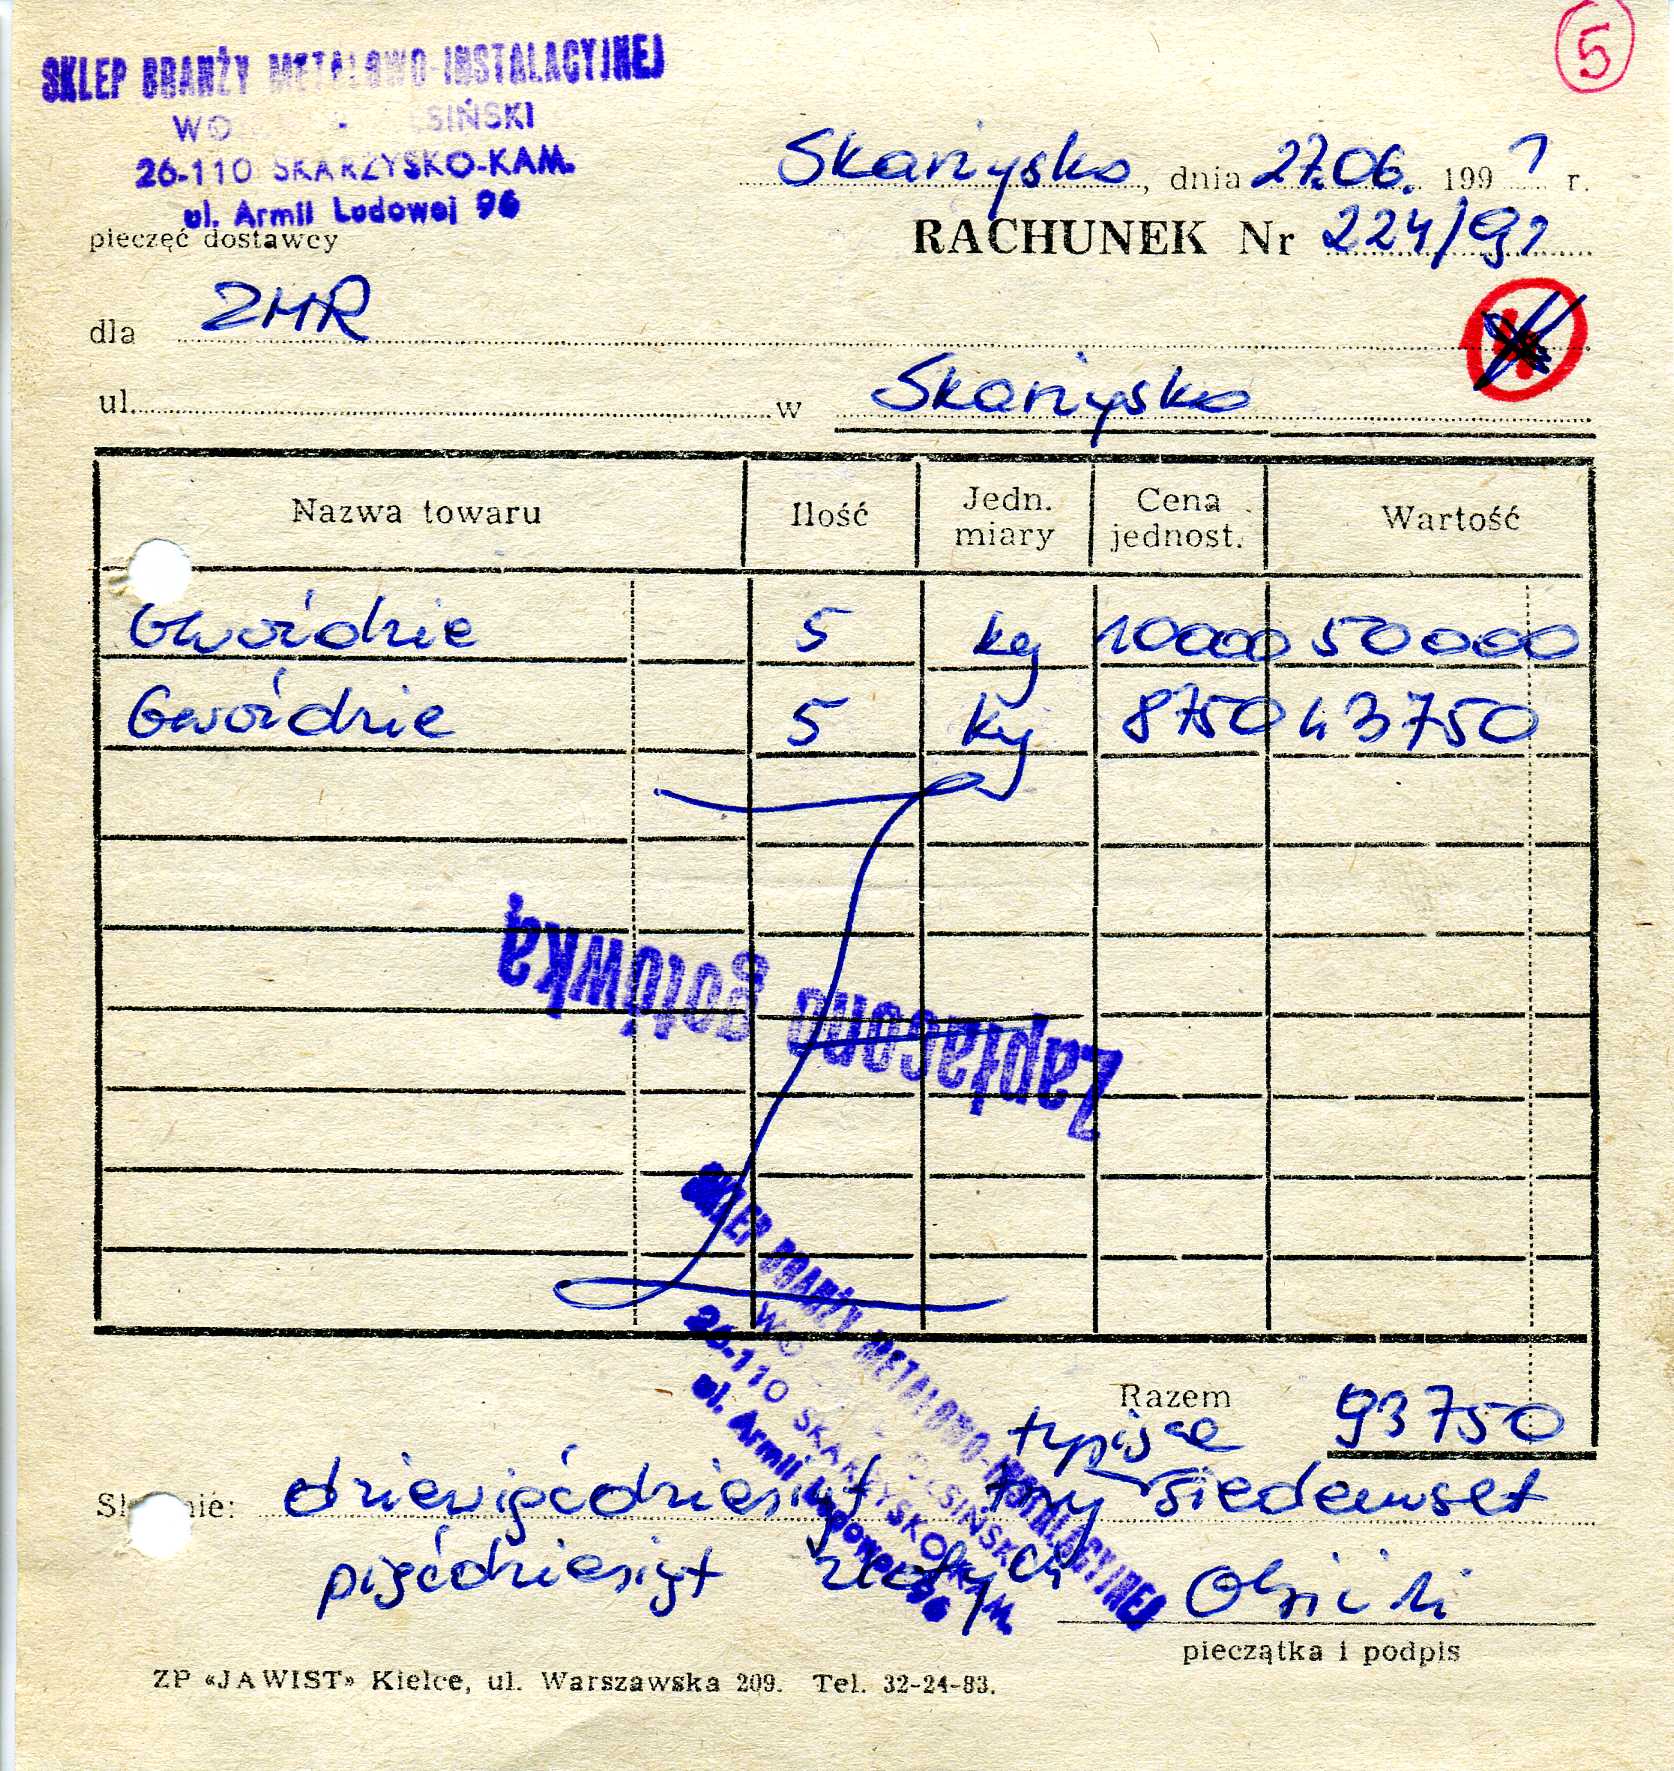 5
SKLEP BRANŻY METALOWO-INSTALACYJNEJ
26-110 SKARŻYSKO-KAM.
ul. Armii Ludowej 96
pieczęć dostawcy
Skarżysko, dnia 27.06. 1991 r.
RACHUNEK Nr 224/91
dla ZMR
ul. w Skarżysko
Nazwa towaru Ilość Jedn. miary Cena jednost. Wartość
Gwoździe 5 kg 10000 50000
Gwoździe 5 kg 8750 43750
Zapłacono gotówką
SKLEP BRANŻY METALOWO-INSTALACYJNEJ
26-110 SKARŻYSKO-KAM.
ul. Armii Ludowej 96
Razem 93750
tysiące
Słownie: dziewięćdziesiąt trzy siedemset
pięćdziesiąt złotych
pieczątka i podpis
ZP «JAWIST» Kielce, ul. Warszawska 209. Tel. 32-24-83.